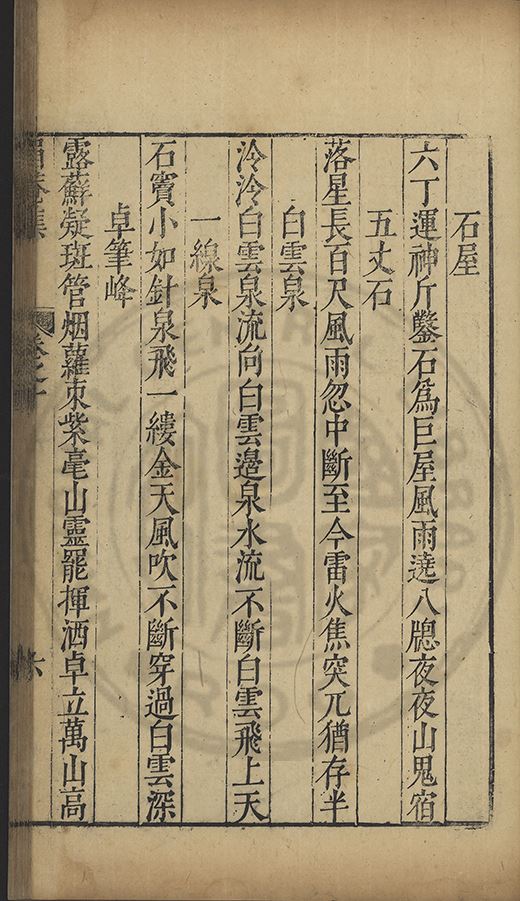 石屋
六丁運神斤鑿石爲巨屋風雨遶八牕夜夜山鬼宿
五丈石
落星長百尺風雨忽中斷至今雷火焦突兀猶存半
白雲泉
泠泠白雲泉流向白雲邊泉水流不斷白雲飛上天
一線泉
石竇小如針泉飛一縷金天風吹不斷穿過白雲深
卓筆峰
露蘚凝斑管烟蘿束紫毫山靈罷揮洒卓立萬山高
卷之十
六